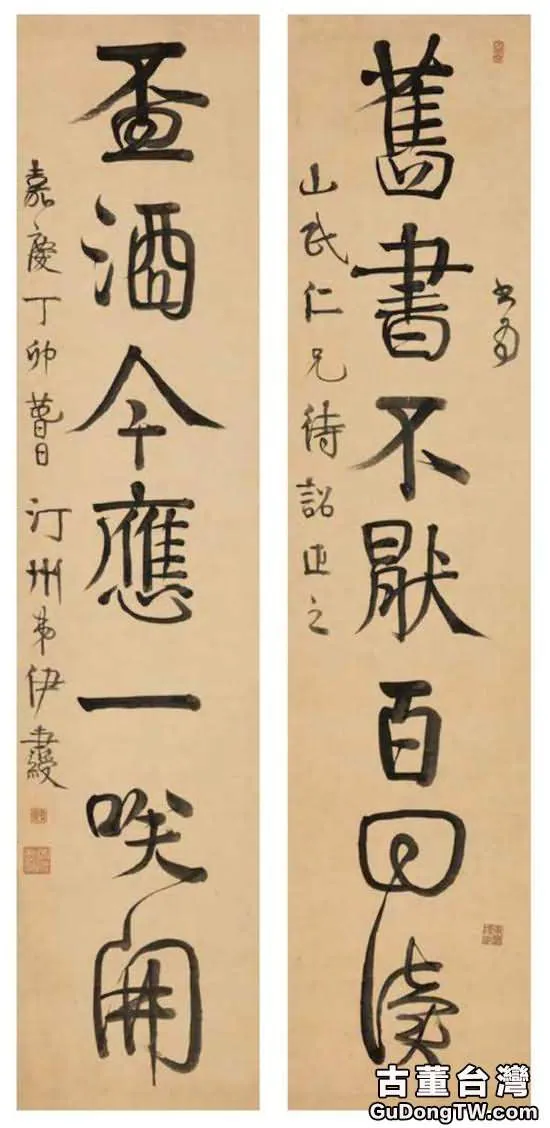 書為
舊書不猒百回讀
山民仁兄待詔正之
盃酒今應一咲開
嘉慶丁卯 汀州弟伊秉綬
古董台灣
GuDongTW.com